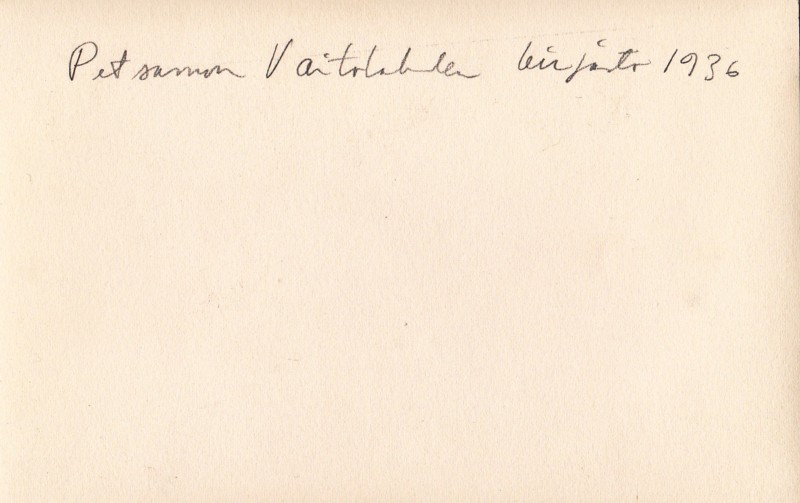 Petsamon Vaitolahden kirjasto 1936